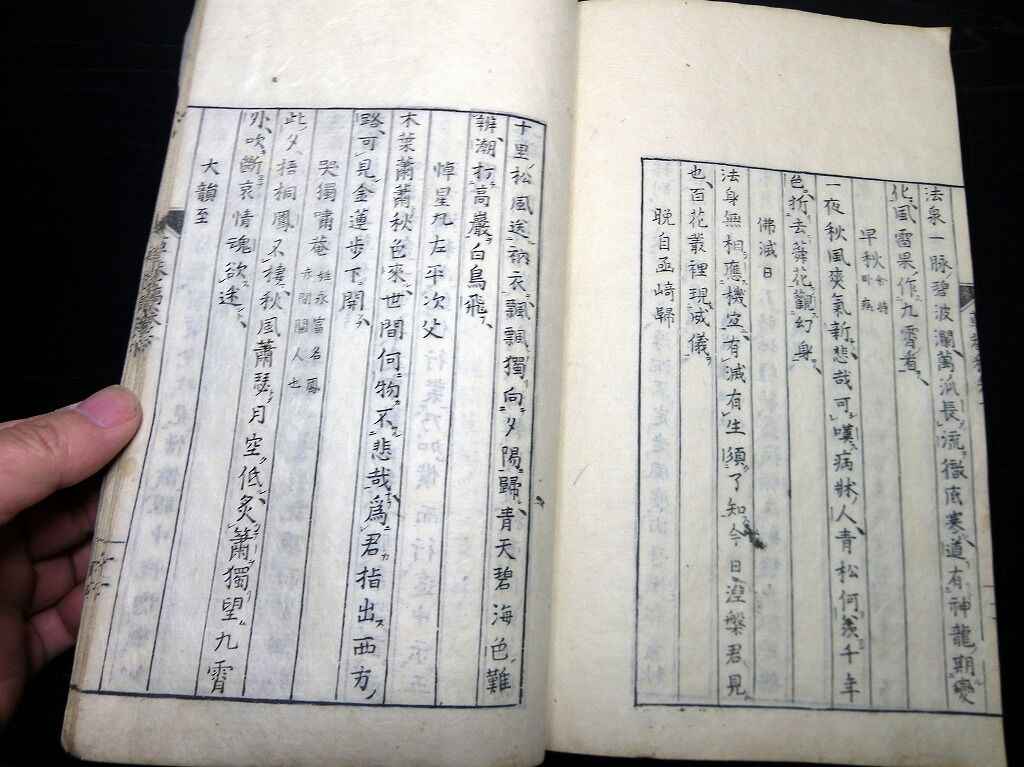 法泉一脉碧波瀾萬派長流徹底寒道有神龍期變
化風雷果作九霄看
早秋
一夜秋風爽氣新悲哉可嘆病牀人青松何羨千年
色折去蕣花觀幻身
佛滅日
法身無相應機宜有滅有生須了知今日涅槃君見
也百花叢裡現威儀
晚自函﨑歸
十里松風送衲衣飄飄獨向夕陽歸青天碧海色難
辨潮打高巖白鳥飛
悼星九左平次父
木葉蕭蕭秋色來世間何物不悲哉為君指出西方
路可見金蓮步下開
哭獨嘯菴
此夕梧桐鳳不棲秋風蕭瑟月空低炙簫獨望九霄
外吹斷哀情魂欲迷
大韻至